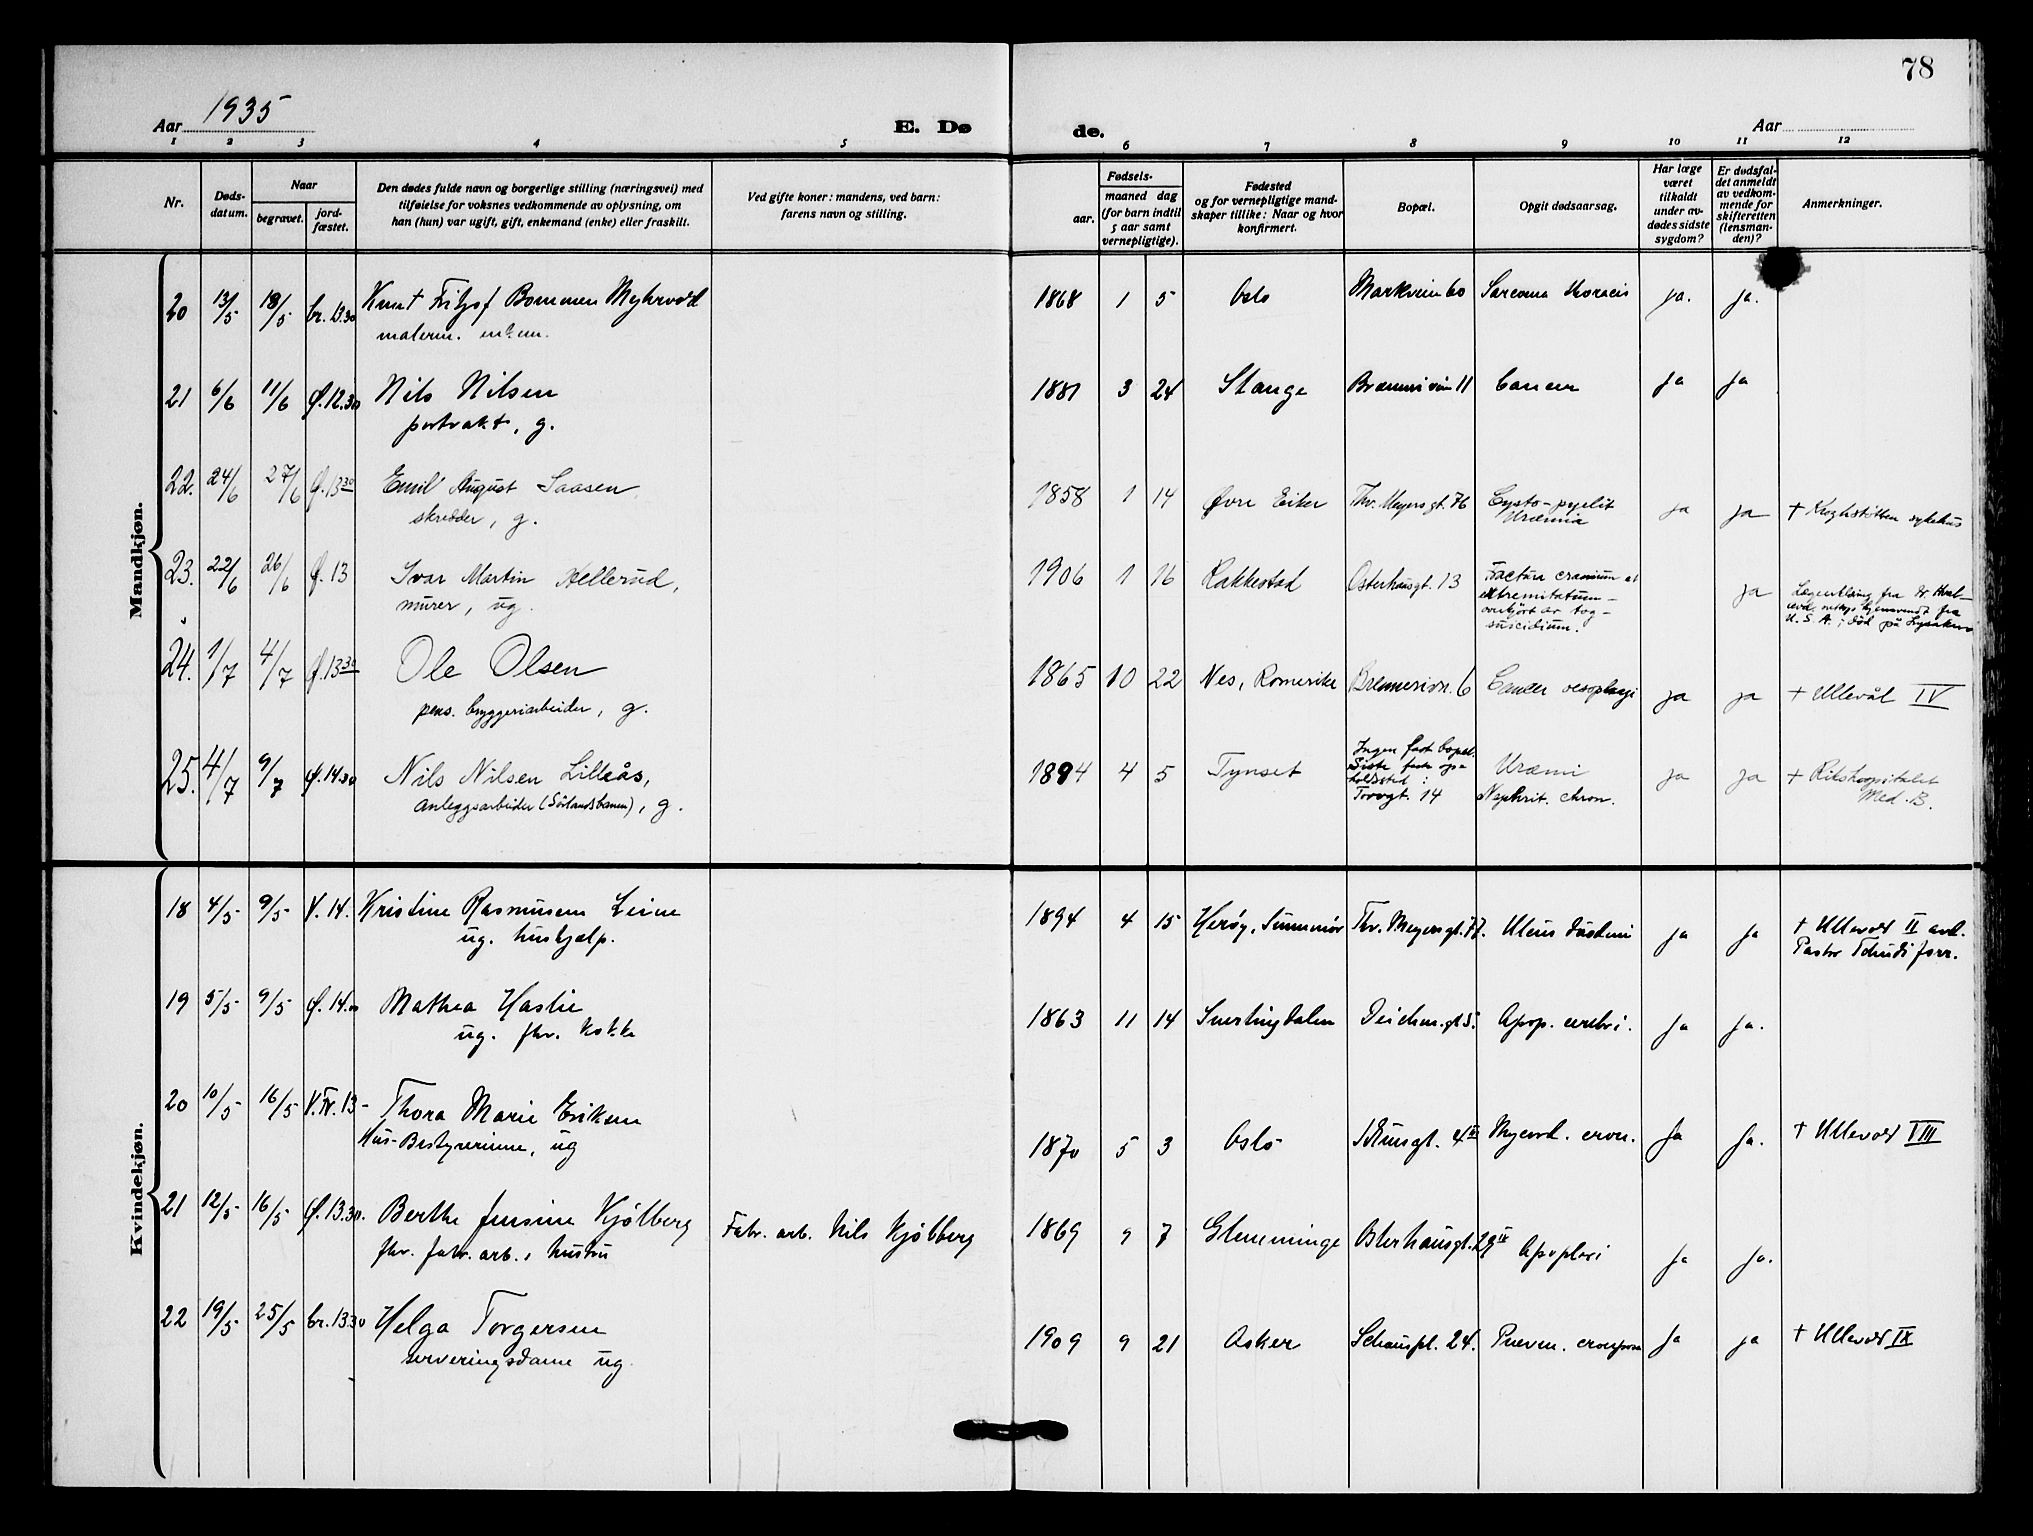 78
Aar 1935
E. Dø
de.
Aar
1 2 3 4 5 6 7 8 9 10 11 12
Nr.
Døds-
datum.
Naar
begravet.
jord-
fæstet.
Den dødes fulde navn og borgerlige stilling (næringsvei) med
tilføielse for voksnes vedkommende av oplysning, om
han (hun) var ugift, gift, enkemand (enke) eller fraskilt.
Ved gifte koner: mandens, ved barn:
farens navn og stilling.
Fødsels-
aar.
maaned dag
(for barn indtil
5 aar samt
vernepligtige).
Fødested
og for vernepligtige mand-
skaper tillike: Naar og hvor
konfirmert.
Bopæl.
Opgit dødsaarsag.
Har læge
været
tilkaldt
under av-
dødes sidste
sygdom?
Er dødsfal-
det anmeldt
av vedkom-
mende for
skifteretten
(lensman-
den)?
Anmerkninger.
Mandkjøn.
20 13/5 18/5 br. 13.30 Knut Fritjof Bommen 1868 1 5 Oslo Markveien 60 Sarcoma thoracis ja. ja.
21 6/6 11/6 Ø. 12.30 Nils Nilsen 1881 3 24 Stange 11 Cancer ja ja
portvakt, g.
22. 24/6 27/6 Ø. 13 30 Emil August Saasen 1858 1 14 Øvre Eiker Thv. Meyersgt. 76 Cysto-pyelit ja ja † Krohgstøtten sykehus
skredder, g. Uræmia
23. 22/6 26/6 Ø. 13 Ivar Martin Hellerud, 1906 1 16 Rakkestad Osterhausgt. 13 Fractura cranium et ja
murer, ug. extremitatum -
overkjørt av tog -
suicidium.
U. S. A.; død på Lysaker
24. 1/7 4/7 Ø. 13 30 Ole Olsen 1865 10 22 Nes, Romerike Brenneriv. 6 Cancer oesophagi ja ja † Ullevål IV
pens. bryggeriarbeider, g.
25. 4/7 9/7 Ø. 14.30 Nils Nilsen Lilleås, 1894 4 5 Tynset Ingen fast bopel. Uræmi ja ja † Rikshospitalet
Siste faste op-
holdssted:
anleggsarbeider (Sørlandsbanen), g. Torvgt. 14 Nephrit. chron. Med. B.
Kvindekjøn.
18 4/5 9/5 V. 14. Kristine Rasmussen Leine 1894 4 15 Herøy, Sunnmør Thv. Meyersgt. 77. Ulcus duodeni ja ja † Ullevål II avd.
ug. hushjælp. Pastor Tchudi forr.
19 5/5 9/5 Ø. 14.00 Mathea Haslie 1863 11 14 Snertingdalen Deichm. gt 5. Apop. cerebri. ja ja.
ug. fhv. kokke
20 10/5 16/5 V. Fr. 13- Thora Marie Eriksen 1870 5 3 Oslo Myocard. cron. ja ja. † Ullevål VIII
Hus-Bestyrerinne, ug
21 12/5 16/5 Ø. 13.30. Berthe Jensine Kjølberg Fabr. arb. Nils Kjølberg 1869 9 7 Glemminge Osterhausgt. 29 IV Apoplexi ja ja.
fhv. fabr. arb., hustru
22 19/5 25/5 br. 13.30 Helga Torgersen 1909 9 21 Asker Schouspl. 24. Pnevm. crouposa ja ja † Ullevål IX
serveringsdame ug.